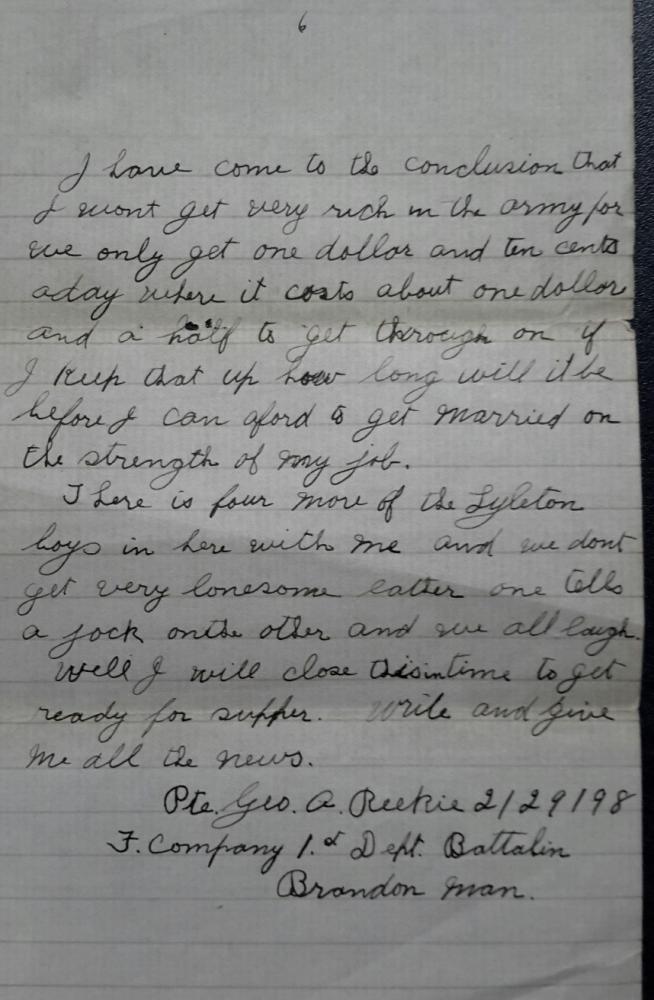 6
I have come to the conclusion that
I wont get very rich in the army for
we only get one dollar and ten cents
aday where it costs about one dollar
and a half to get through on if
I keep that up how long will it be
before I can aford to get married on
the strength of my job.
There is four more of the Lyleton
boys in here with me and we dont
get very lonesome eather one tells
a jock onthe other and we all laugh.
Well I will close thisintime to get
ready for supper. Write and give
me all the news.
Pte. Geo. A. Reekie 2129198
F. Company 1.st Dept. Battalin
Brandon Man.